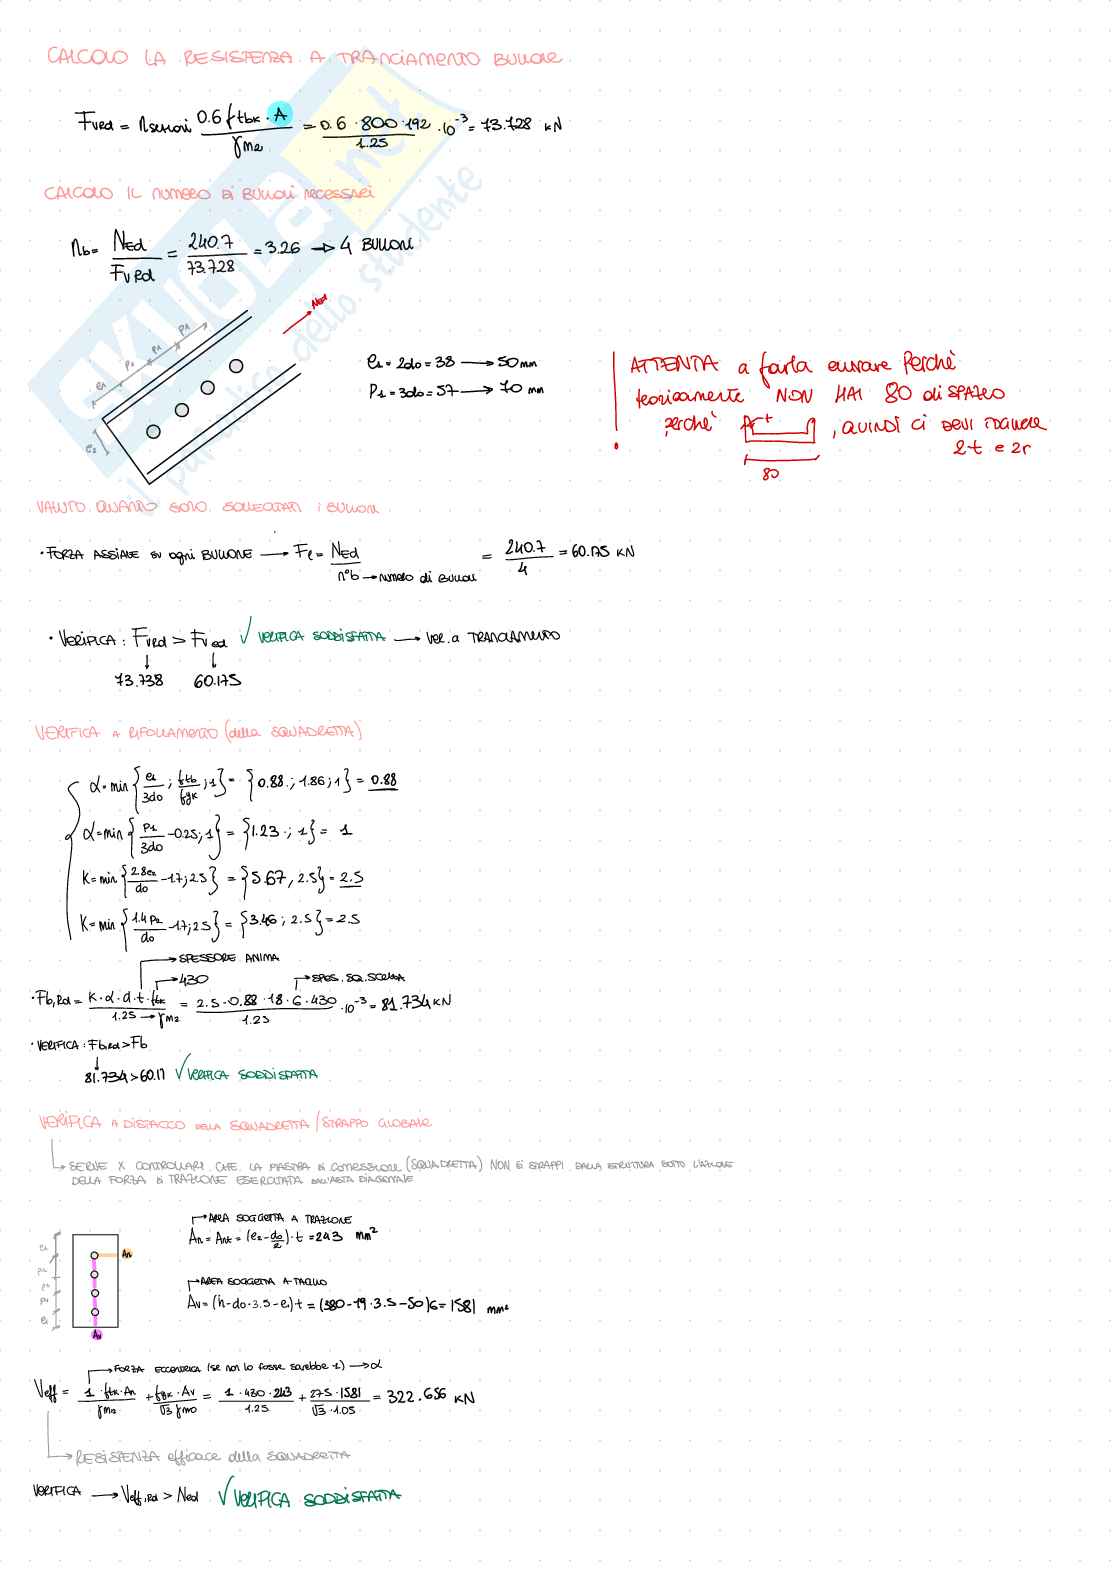 CALCOLO LA RESISTENZA A TRANCIAMENTO BULLONE
FvRd = nsezioni 0.6 ftbk · A / γm2 = 0.6 · 800 · 192 / 1.25 · 10⁻³ = 73.728 kN
CALCOLO IL NUMERO DI BULLONI NECESSARI
nb = NEd / FvRd = 240.7 / 73.728 = 3.26 → 4 BULLONI
NEd
e1 P1 P1 P1
e2
e1 = 2d0 = 38 → 50 mm
P1 = 3d0 = 57 → 70 mm
ATTENTA a farla entrare perchè
teoricamente NON HAI 80 di SPAZIO
perchè r t , QUINDI ci DEVI togliere
2t e 2r
80
VALUTO QUANTO SONO SOLLECITATI i BULLONI
· FORZA ASSIALE su ogni BULLONE → Fe = NEd / n°b → numero di BULLONI = 240.7 / 4 = 60.175 KN
· VERIFICA : FvRd > Fved ✓ VERIFICA SODDISFATTA → VER. a TRANCIAMENTO
73.738 60.175
VERIFICA A RIFOLLAMENTO (della SQUADRETTA)
α = min { e1 / 3d0 ; ftb / fyk ; 1 } = { 0.88 ; 1.86 ; 1 } = 0.88
α = min { P1 / 3d0 - 0.25 ; 1 } = { 1.23 ; 1 } = 1
K = min { 2.8e2 / d0 - 1.7 ; 2.5 } = { 5.67 , 2.5 } = 2.5
K = min { 1.4 P2 / d0 - 1.7 ; 2.5 } = { 3.46 ; 2.5 } = 2.5
→ SPESSORE ANIMA
→ 430 → SPES. SQ. SCELTA
· Fb,Rd = K · α · d · t · ftk / 1.25 → γm2 = 2.5 · 0.88 · 18 · 6 · 430 / 1.25 · 10⁻³ = 81.734 KN
· VERIFICA : Fb,Rd > Fb
81.734 > 60.17 ✓ VERIFICA SODDISFATTA
VERIFICA A DISTACCO DELLA SQUADRETTA / STRAPPO GLOBALE
→ SERVE X CONTROLLARE CHE LA PIASTRA DI CONNESSIONE (SQUADRETTA) NON SI STRAPPI DALLA STRUTTURA SOTTO L'AZIONE
DELLA FORZA DI TRAZIONE ESERCITATA DALL'ASTA DIAGONALE
→ AREA SOGGETTA A TRAZIONE
An = Ant = (e2 - d0/2) · t = 243 mm²
e1 P1 P1 P1 e1
An
Av
→ AREA SOGGETTA A TAGLIO
Av = (h - d0 · 3.5 - e1) t = (380 - 19 · 3.5 - 50) 6 = 1581 mm²
→ FORZA ECCENTRICA (se non lo fosse sarebbe 1) → α
Veff = 1 · ftk · An / γm2 + fyk · Av / √3 γm0 = 1 · 430 · 243 / 1.25 + 275 · 1581 / √3 · 1.05 = 322.656 KN
→ RESISTENZA efficace della SQUADRETTA
VERIFICA → Veff,Rd > Ned ✓ VERIFICA SODDISFATTA
SKUOLA.net
il paradiso dello studente